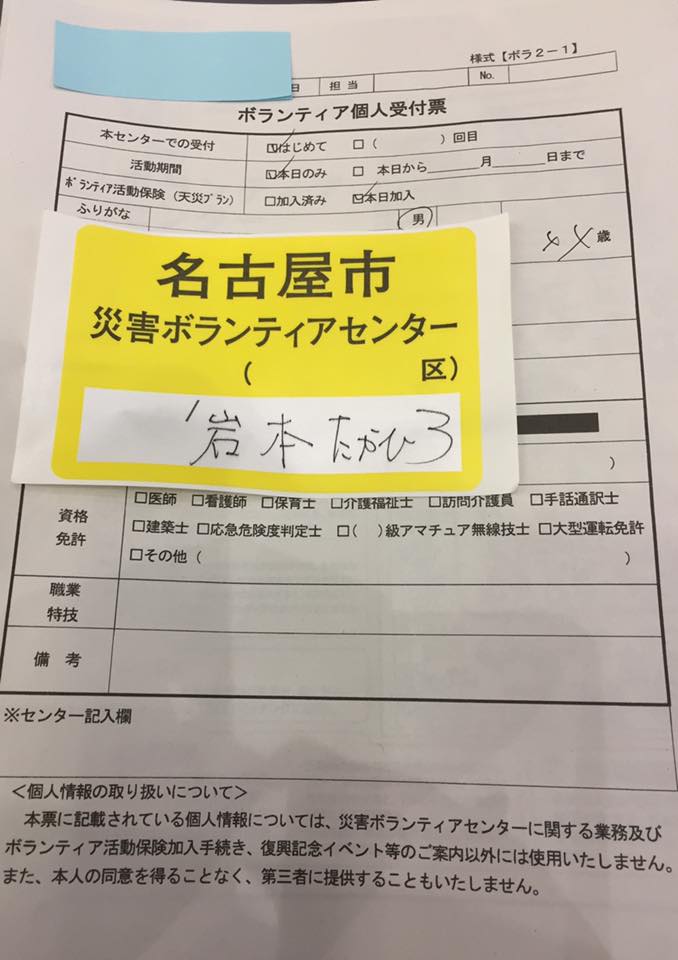 様式【ボラ２－１】
日 担当 No.
ボランティア個人受付票
本センターでの受付 ☑はじめて □（ ）回目
活動期間 ☑本日のみ □ 本日から＿＿＿月＿＿＿日まで
ﾎﾞﾗﾝﾃｨｱ活動保険（天災ﾌﾟﾗﾝ） □加入済み ☑本日加入
ふりがな 男
歳
名古屋市
災害ボランティアセンター
（ 区）
岩本たかひろ
）
資格
免許
□医師 □看護師 □保育士 □介護福祉士 □訪問介護員 □手話通訳士
□建築士 □応急危険度判定士 □（ ）級アマチュア無線技士 □大型運転免許
□その他（ ）
職業
特技
備考
※センター記入欄
＜個人情報の取り扱いについて＞
本票に記載されている個人情報については、災害ボランティアセンターに関する業務及び
ボランティア活動保険加入手続き、復興記念イベント等のご案内以外には使用いたしません。
また、本人の同意を得ることなく、第三者に提供することもいたしません。